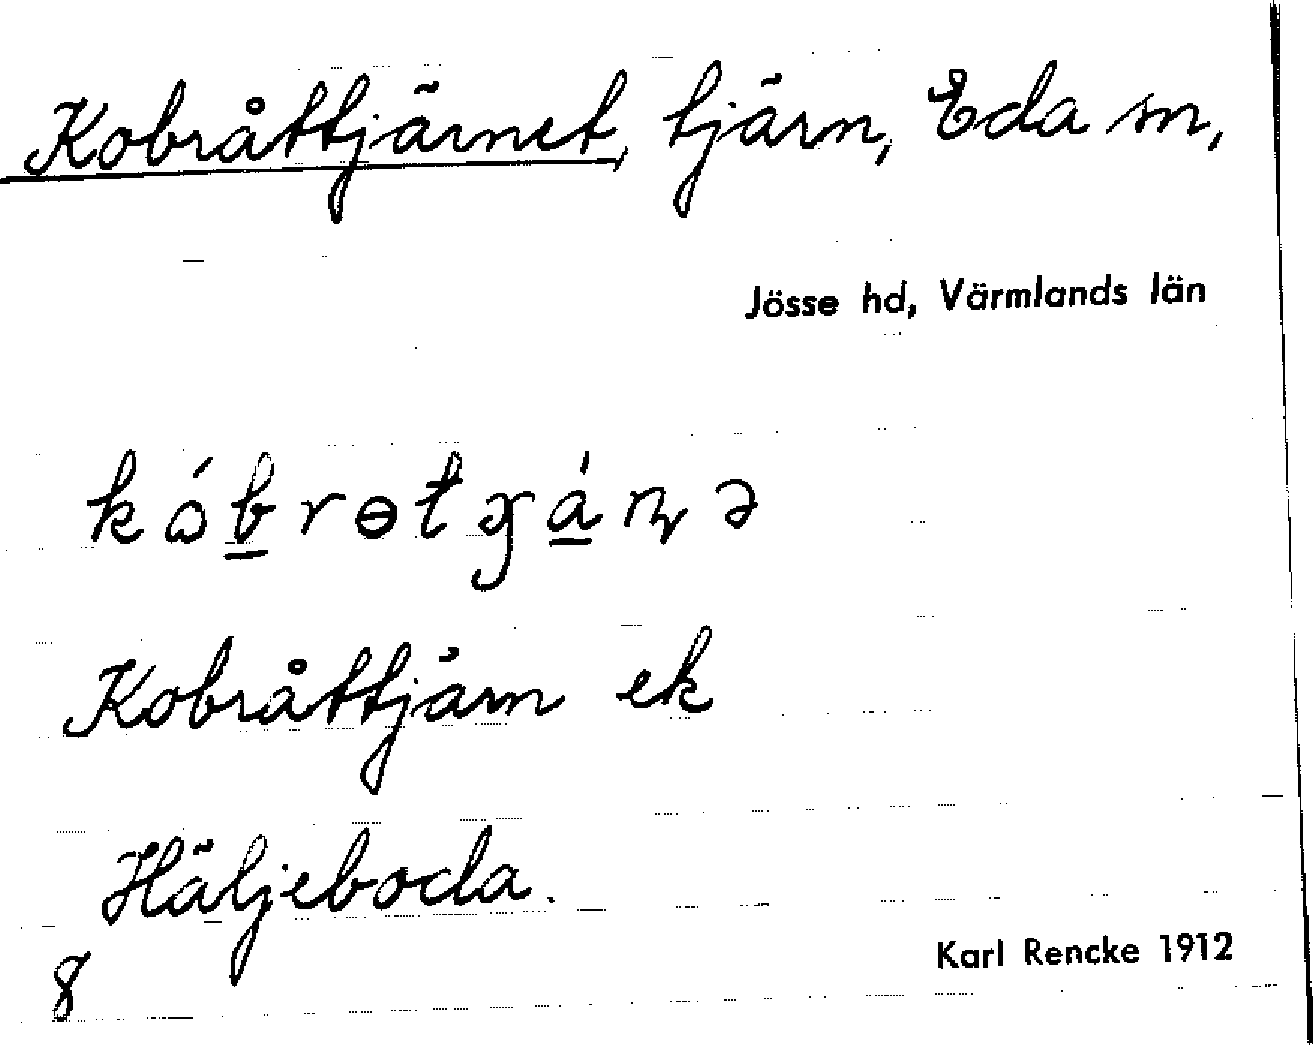 Kobråttjärnet, tjärn, Eda sn,
Jösse hd, Värmlands län
Kobråttjärn ek
Häljeboda.
8
Karl Rencke 1912